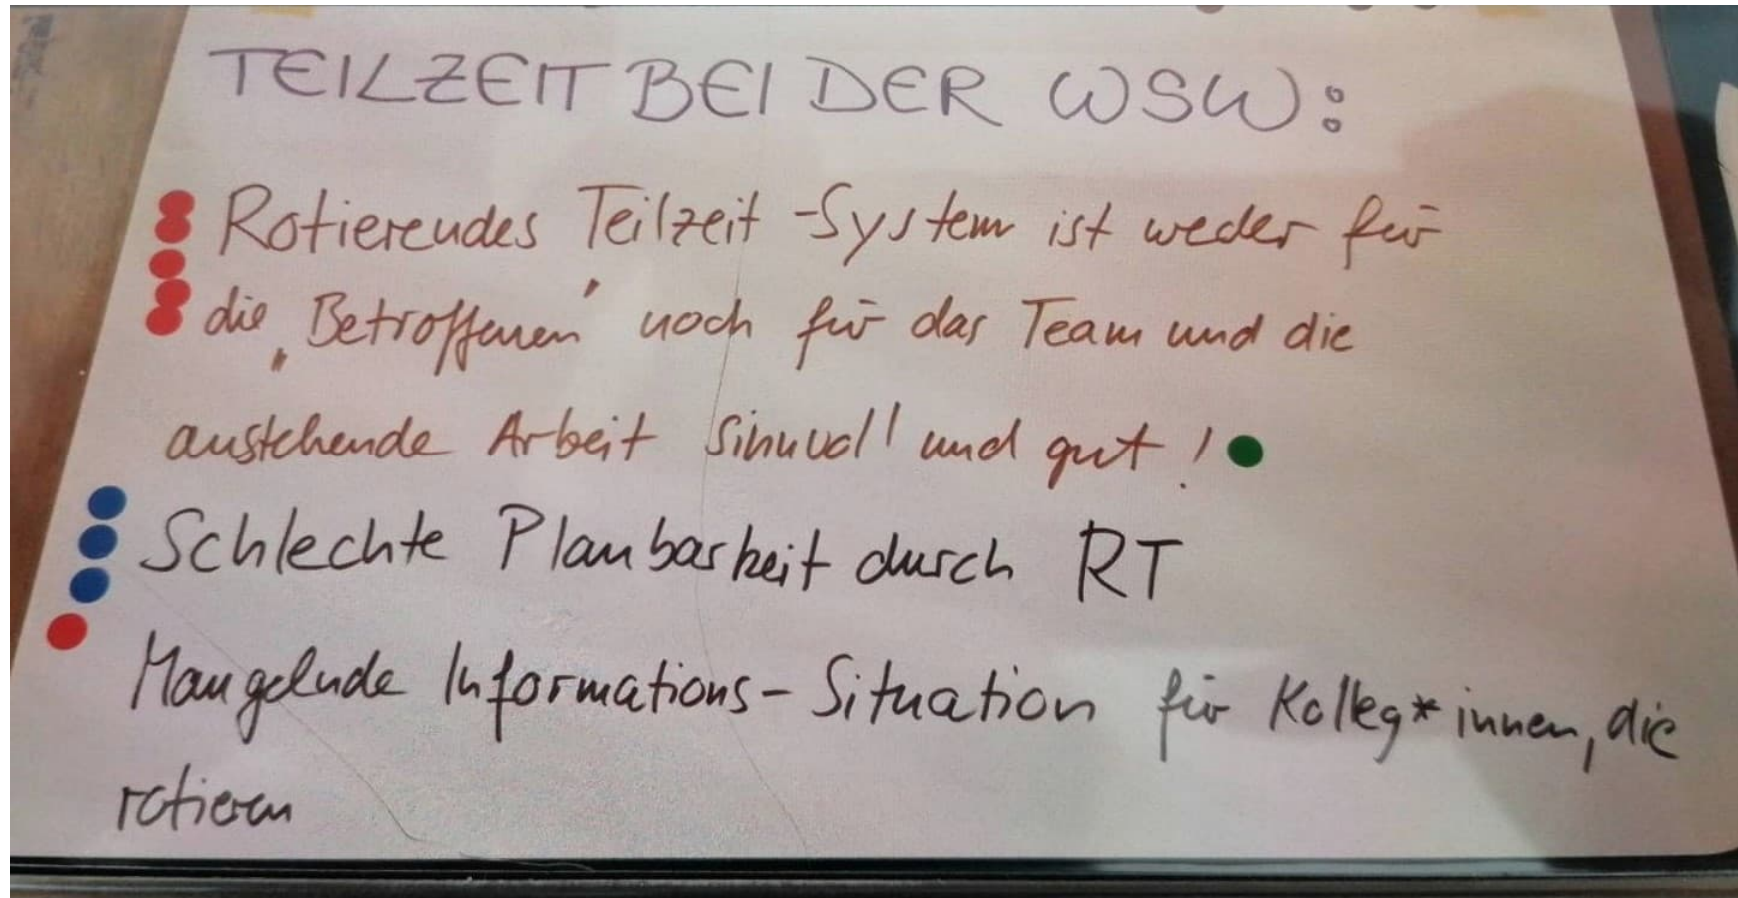 TEILZEIT BEI DER WSW:
Rotierendes Teilzeit-System ist weder für
die „Betroffenen" noch für das Team und die
anstehende Arbeit sinnvoll und gut!
Schlechte Planbarkeit durch RT
Mangelnde Informations-Situation für Kolleg*innen, die
rotieren